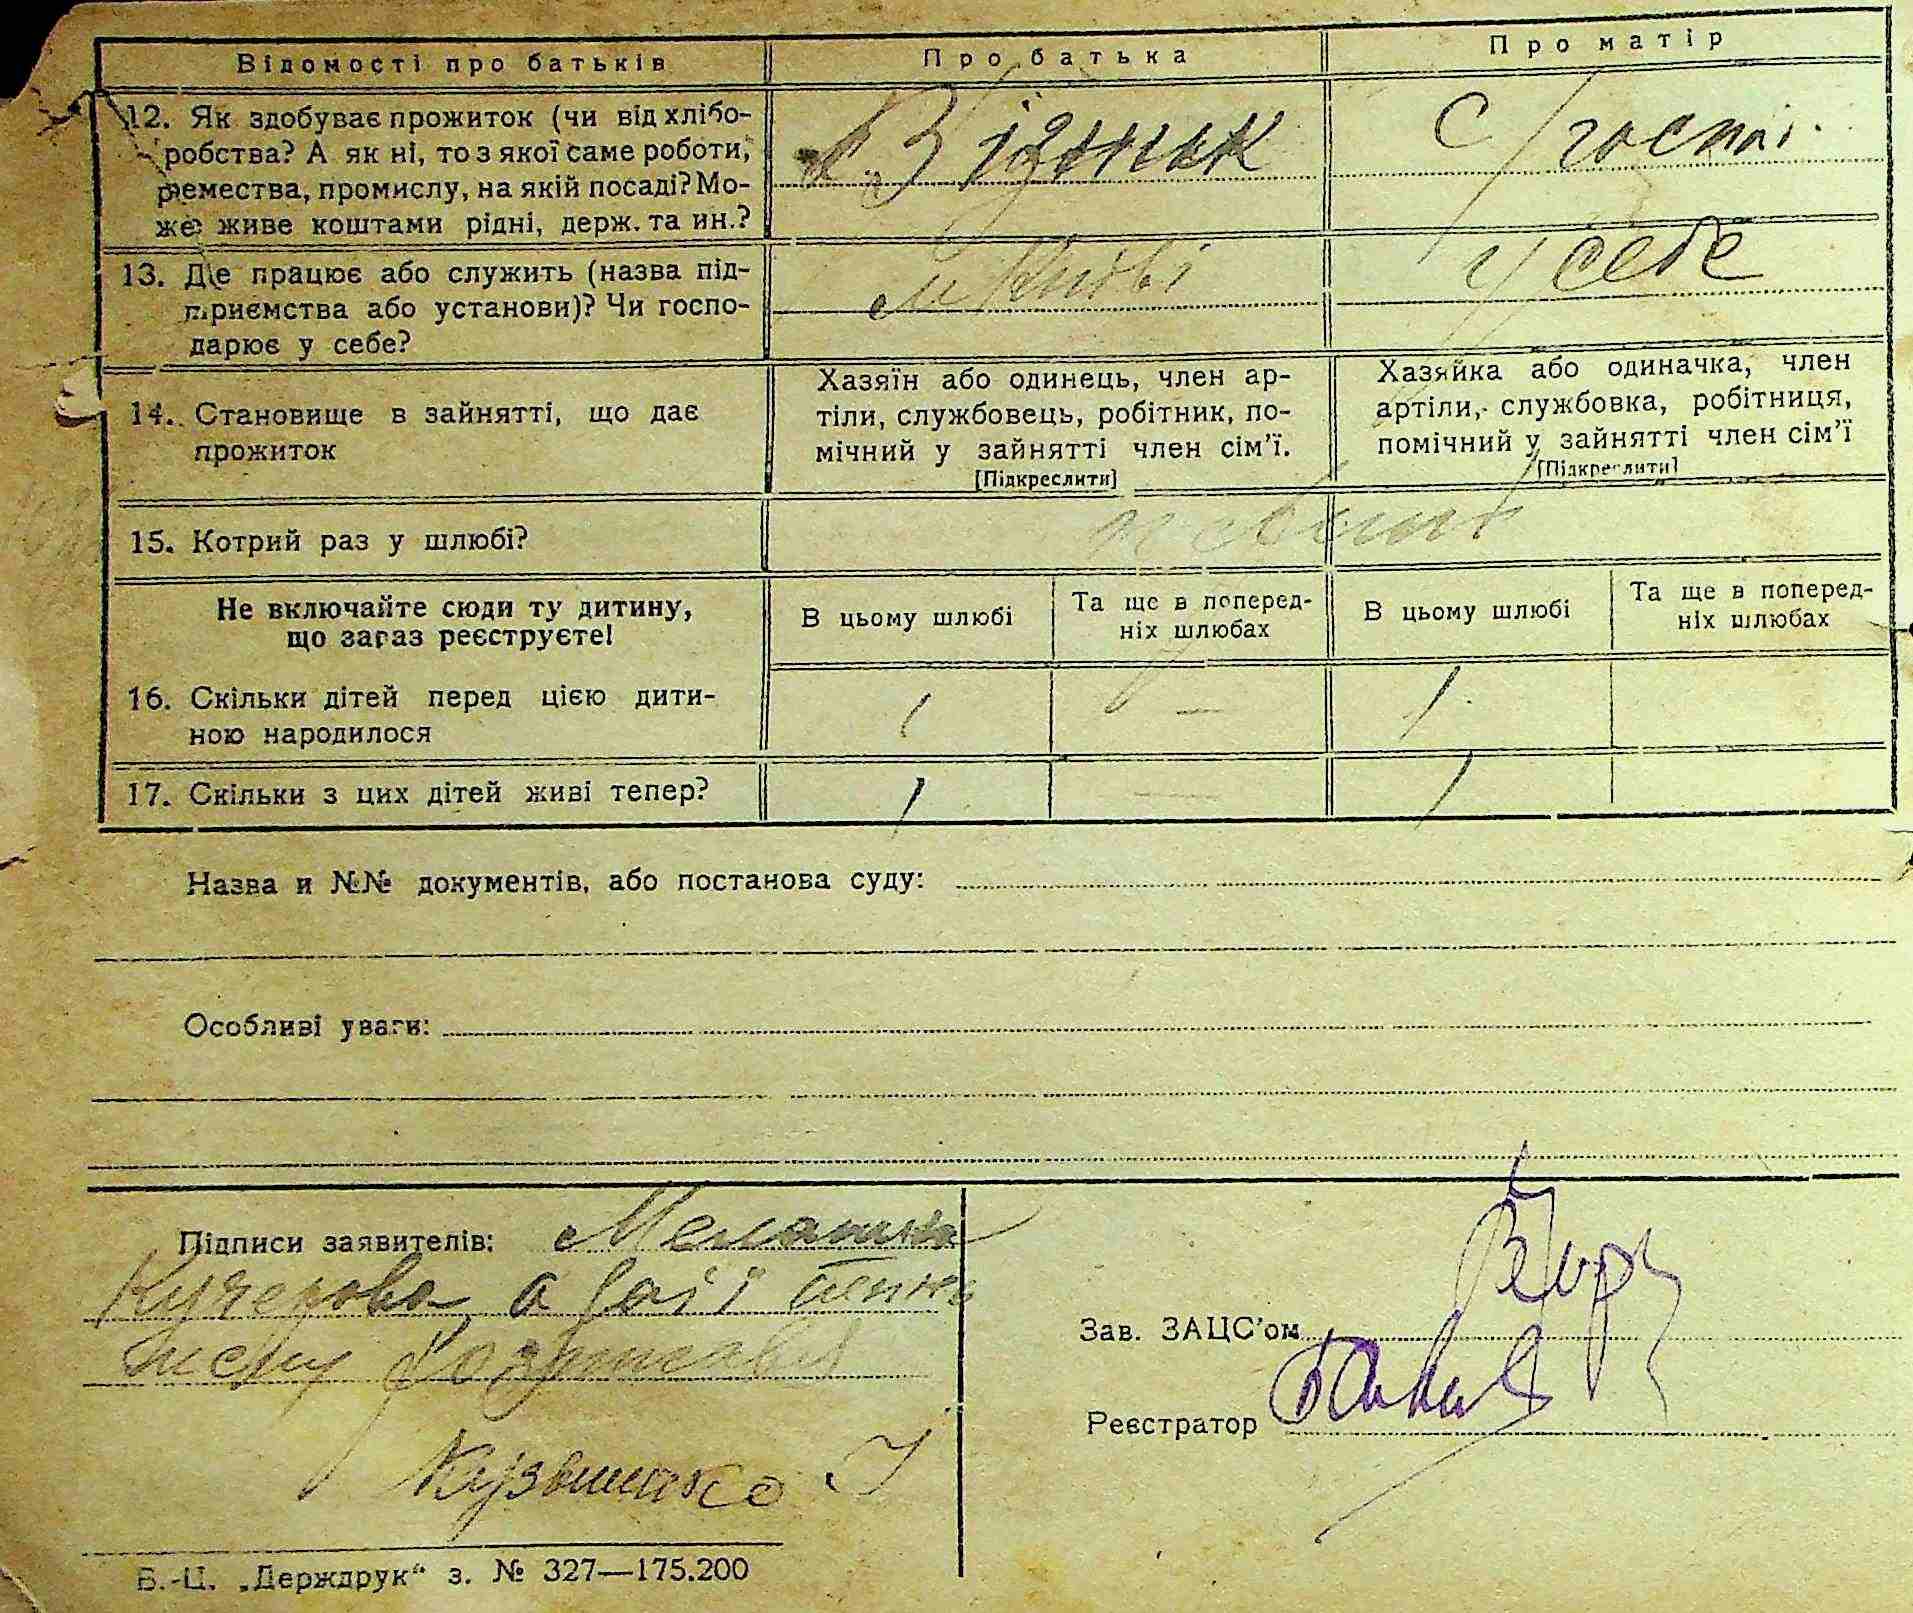 Відомості про батьків
Про батька
Про матір
12. Як здобуває прожиток (чи від хлібо-
робства? А як ні, то з якої саме роботи,
ремества, промислу, на якій посаді? Мо-
же живе коштами рідні, держ. та ин.?
Візник
С/господ.
13. Де працює або служить (назва під-
приємства або установи)? Чи госпо-
дарює у себе?
у себе
14. Становище в зайнятті, що дає
прожиток
Хазяїн або одинець, член ар-
тіли, службовець, робітник, по-
мічний у зайнятті член сім’ї.
[Підкреслити]
Хазяйка або одиначка, член
артіли, службовка, робітниця,
помічний у зайнятті член сім’ї
[Підкреслити]
15. Котрий раз у шлюбі?
Не включайте сюди ту дитину,
що зараз реєструєте!
В цьому шлюбі
Та ще в поперед-
ніх шлюбах
В цьому шлюбі
Та ще в поперед-
ніх шлюбах
16. Скільки дітей перед цією дити-
ною народилося
1 — 1
17. Скільки з цих дітей живі тепер?
1 — 1
Назва и №№ документів, або постанова суду:
Особливі уваги:
Підписи заявителів:
Кучерова а за її
Зав. ЗАЦС’ом
Реєстратор
Б.-Ц. „Держдрук“ з. № 327—175.200